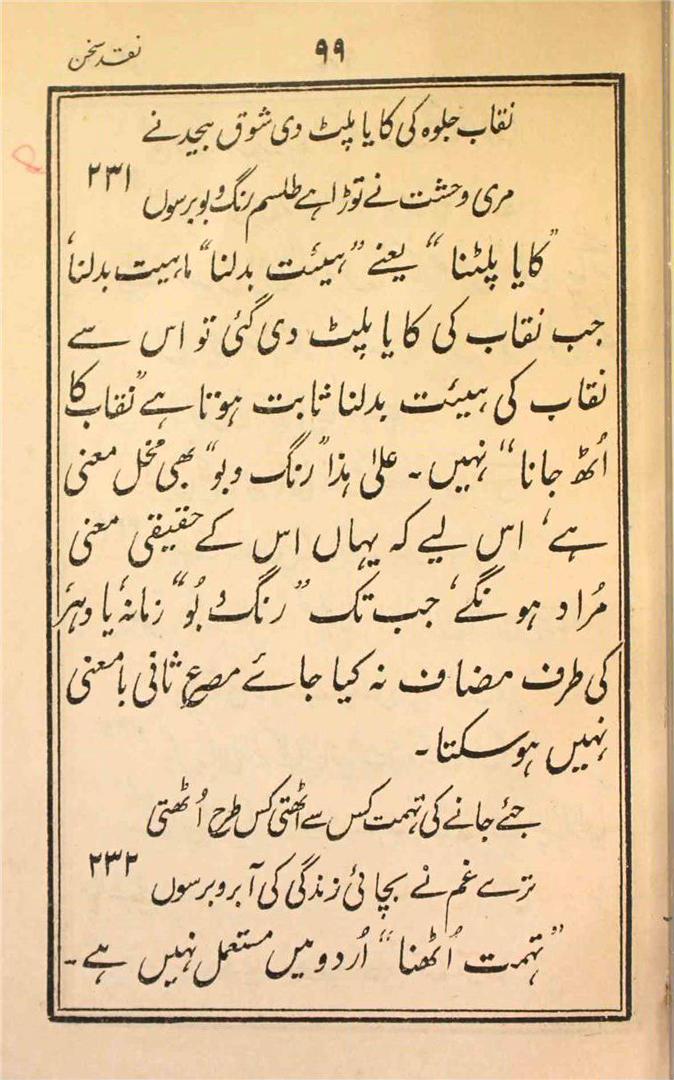 ۹۹
نقد سخن
نقاب جلوہ کی کایا پلٹ دی شوق بیحد نے
مری وحشت نے توڑا ہے طلسم رنگ و بو برسوں ۲۳۱
"کایا پلٹنا" یعنے "ہیئت بدلنا" ماہیت بدلنا،
جب نقاب کی کایا پلٹ دی گئی تو اس سے
نقاب کی ہیئت بدلنا ثابت ہوتا ہے "نقاب کا
اُٹھ جانا" نہیں۔ علیٰ ہذا "رنگ و بو" بھی مخل معنی
ہے، اس لیے کہ یہاں اس کے حقیقی معنی
مُراد ہونگے، جب تک "رنگ و بُو" زمانہ، یا دہر
کی طرف مضاف نہ کیا جائے مصرع ثانی بامعنی
نہیں ہوسکتا۔
جئے جانے کی تہمت کس سے اٹھتی کس طرح اُٹھتی
ترے غم نے بچائی زندگی کی آبرو برسوں ۲۳۲
"تہمت اُٹھنا" اُردو میں مستعمل نہیں ہے۔